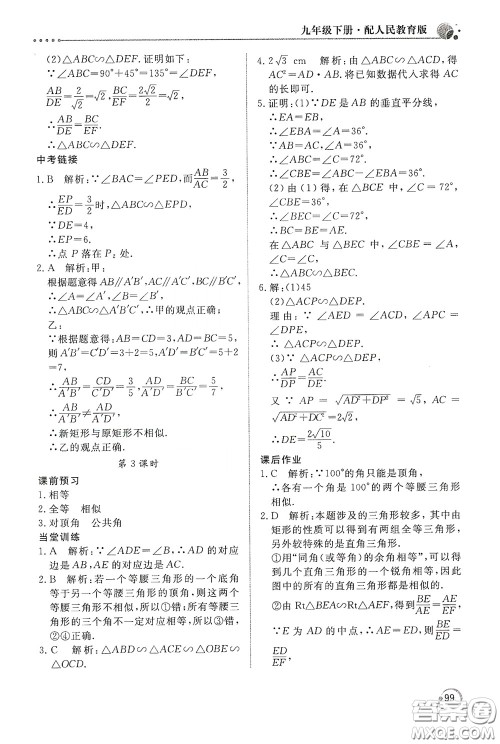 九年级下册·配人民教育版
(2)△ABC∽△DEF. 证明如下:
∵∠ABC=90°+45°=135°=∠DEF,
AB/DE=2/√2=√2, BC/EF=2√2/2=√2,
∴AB/DE=BC/EF.
∴△ABC∽△DEF.
中考链接
1. B 解析:∵∠BAC=∠PED,而AB/AC=3/2,
∴EP/ED=3/2时,△ABC∽△EPD.
∵DE=4,
∴EP=6.
∴点P落在P₂处.
2. A 解析:甲:
根据题意得AB∥A′B′,AC∥A′C′,BC∥B′C′,
∴∠A=∠A′,∠B=∠B′.
∴△ABC∽△A′B′C′,∴甲的观点正确.
乙:
∵根据题意得,AB=CD=3,AD=BC=5,
则A′B′=C′D′=3+2=5,A′D′=B′C′=5+2
=7,
∴AB/A′B′=CD/C′D′=3/5,AD/A′D′=BC/B′C′=5/7,
∴AB/A′B′≠AD/A′D′.
∴新矩形与原矩形不相似.
∴乙的观点正确.
第3课时
课前预习
1. 相等
2. 全等 相似
3. 对顶角 公共角
当堂训练
1. A 解析:∵∠ADE=∠B,∴AD的对应
边是AB,AE的对应边是AC.
2. B 解析:若一个等腰三角形的一个底角
等于另一个等腰三角形的顶角,则这两个
等腰三角形不相似,所以①错;所有的等腰
三角形的三个角不一定对应相等,所以③错;
②④正确.
3. C 解析:△ABD∽△ACE∽△OBE∽
△OCD.
4. 2√3 cm 解析:由△ADC∽△ACB,得
AC²=AD·AB.将已知数据代人求得AC
的长即可.
5. 证明:(1)∵DE是AB的垂直平分线,
∴EA=EB,
∴∠EBA=∠A=36°.
∵∠C=72°,∠A=36°,
∴∠CBE=∠ABC−∠EBA=36°.
(2)由(1)得,在△BCE中,∠C=72°,
∠CBE=36°,
∴∠BEC=∠C=72°.
∴BC=BE=AE.
在△ABC与△BEC中,∠CBE=∠A,
∠C=∠C,
∴△ABC∽△BEC.
6. 解:(1)45
(2)△ACP∽△DEP
理由:∵∠AED=∠ACD,∠APC=
∠DPE,
∴△ACP∽△DEP.
(3)∵△ACP∽△DEP,
∴AP/DP=AC/DE.
又∵AP=√(AD²+DP²)=√5,AC=
√(AD²+DC²)=2√2,
∴DE=2√10/5.
课后作业
1. C 解析:∵100°的角只能是顶角,
∴各有一个角是100°的两个等腰三角形相
似.
2. D 解析:本题涉及的三角形较多,其中由
矩形的性质可以得到两对全等三角形,
另外较特殊的是直角三角形.
①用“同角(或等角)的余角相等”,可以得
到几个直角三角形的锐角相等,因此
图中的所有的直角三角形都是相似的.
②由Rt△BEA∽Rt△AEF,得到BE/AE=AE/EF.
∵E为AD的中点,∴AE=ED,∴BE/ED=
ED/EF,
99